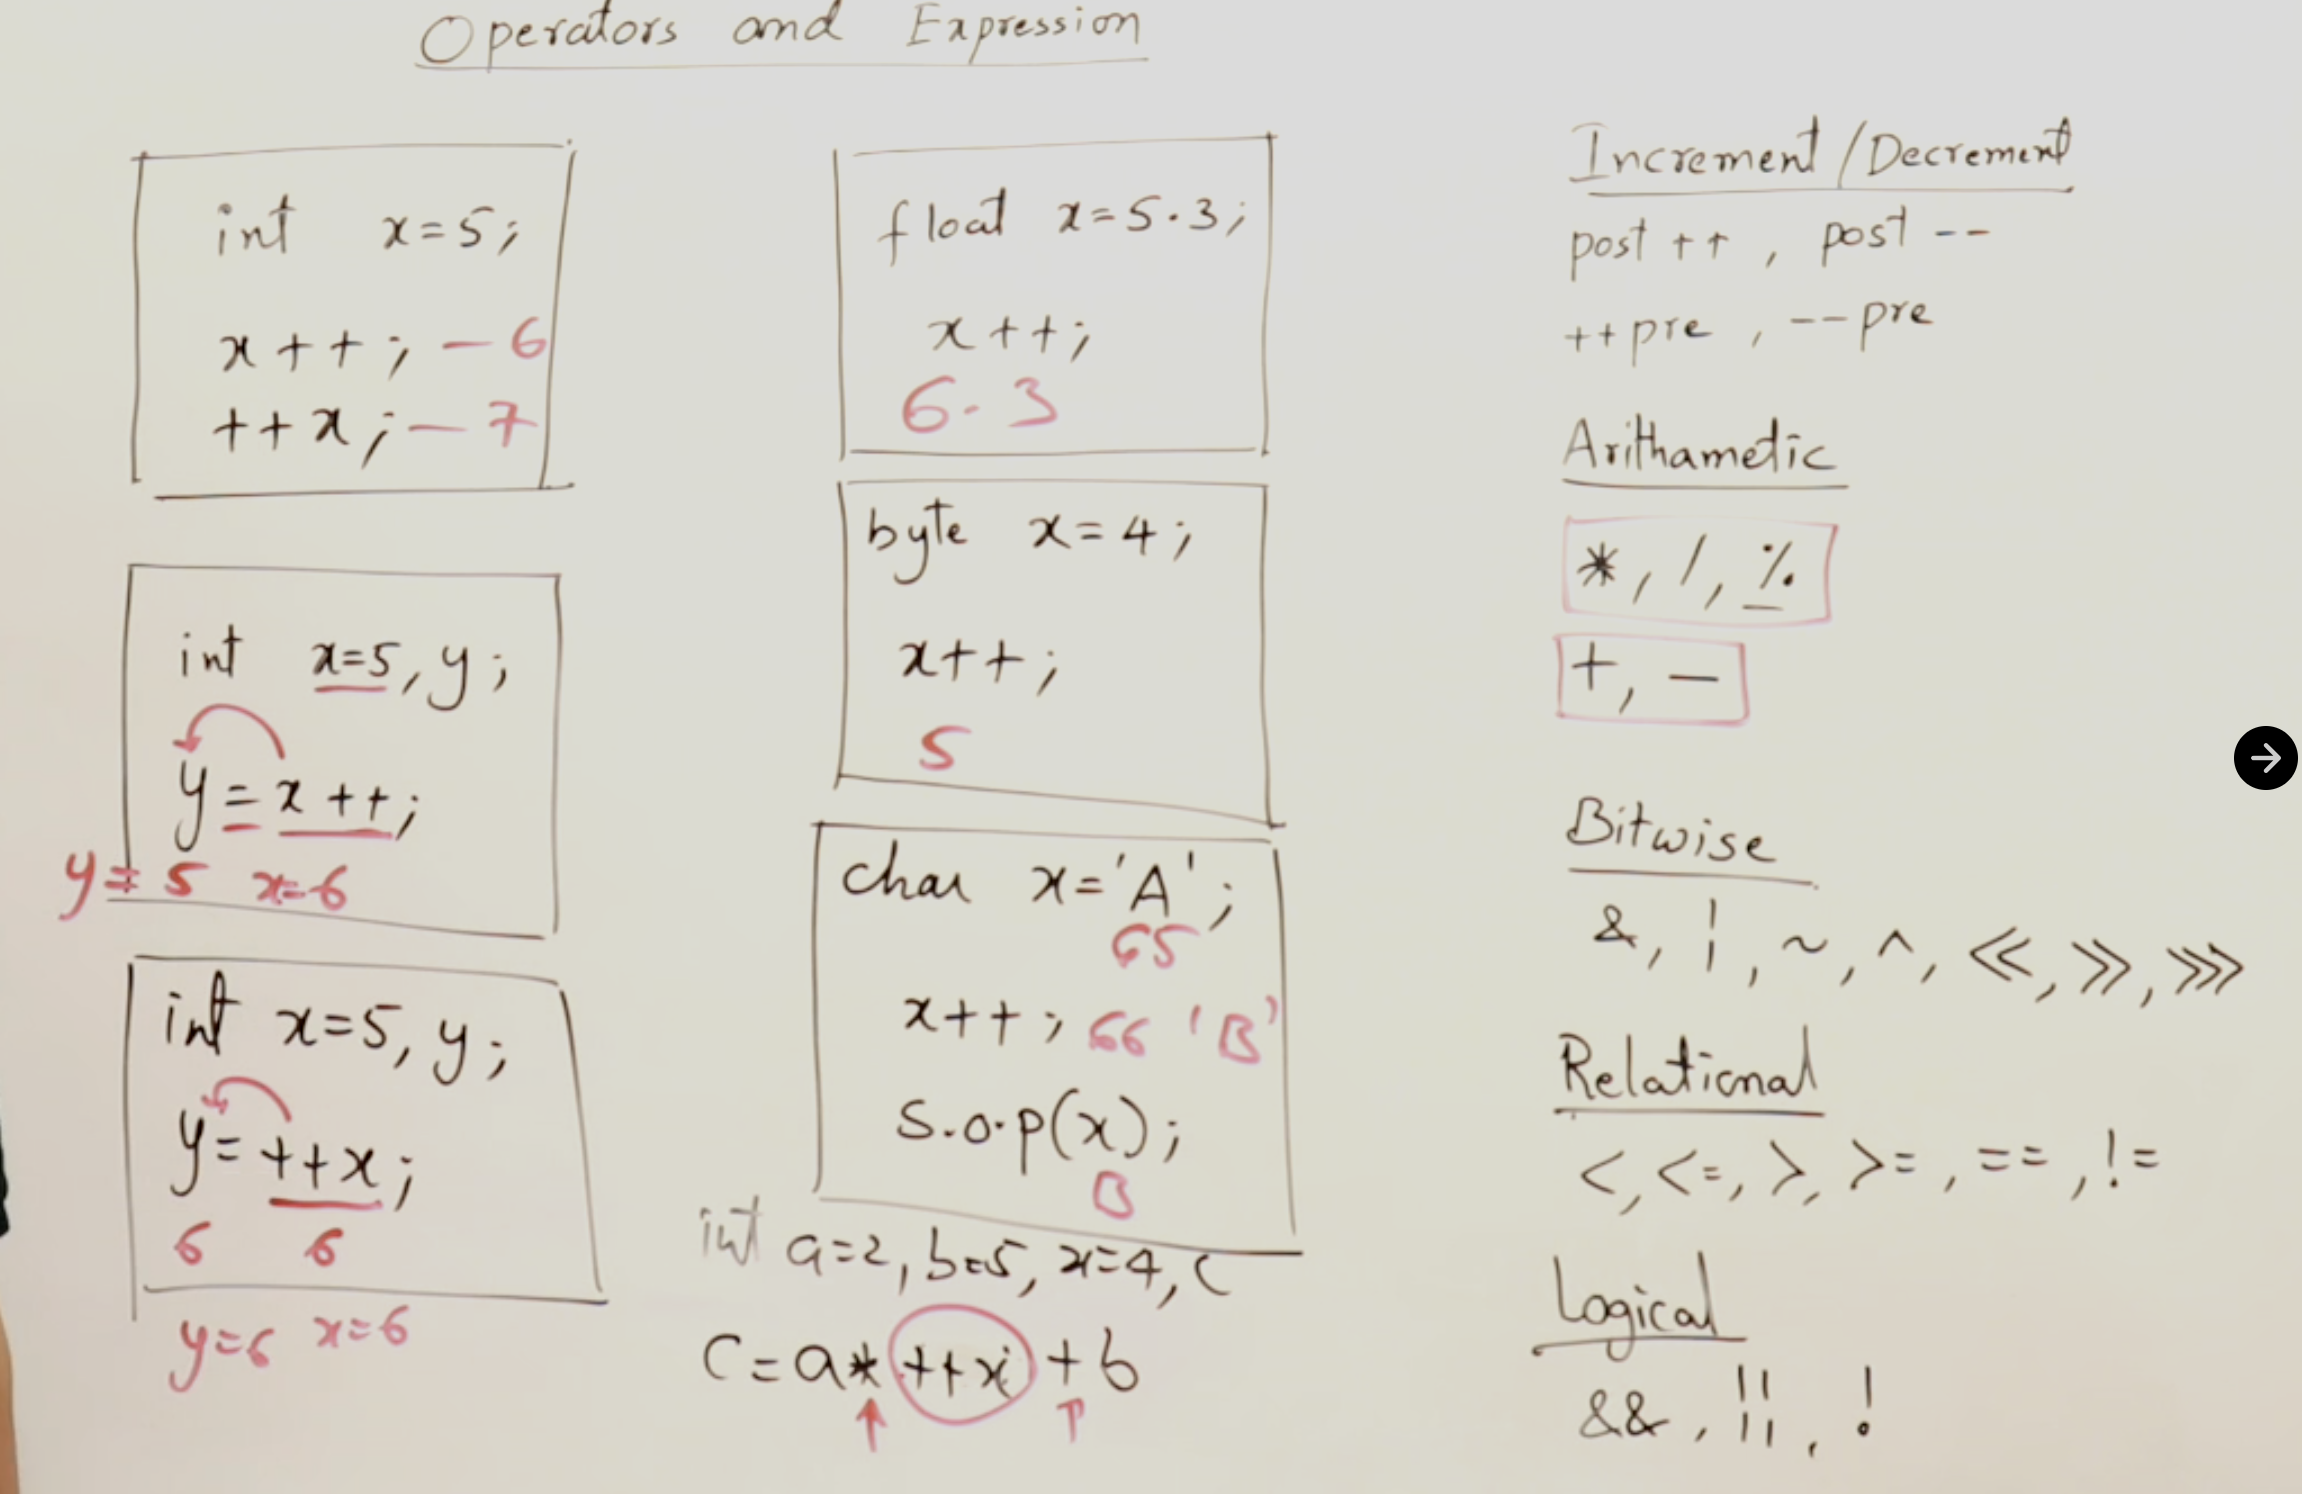 Operators and Expression
int x=5;
x++; - 6
++x; - 7
int x=5, y;
y = x++;
y= 5 x=6
int x=5, y;
y= ++x;
6 6
y=6 x=6
float x=5.3;
x++;
6.3
byte x=4;
x++;
5
char x='A';
65
x++; 66 'B'
S.o.p(x);
B
int a=2, b=5, x=4, C
C=a* ++x +b
Increment/Decrement
post ++, post --
++pre, --pre
Arithametic
*, /, %
+, -
Bitwise
&, ¦, ~, ^, <<, >>, >>>
Relational
<, <=, >, >=, ==, !=
Logical
&&, ¦¦, !